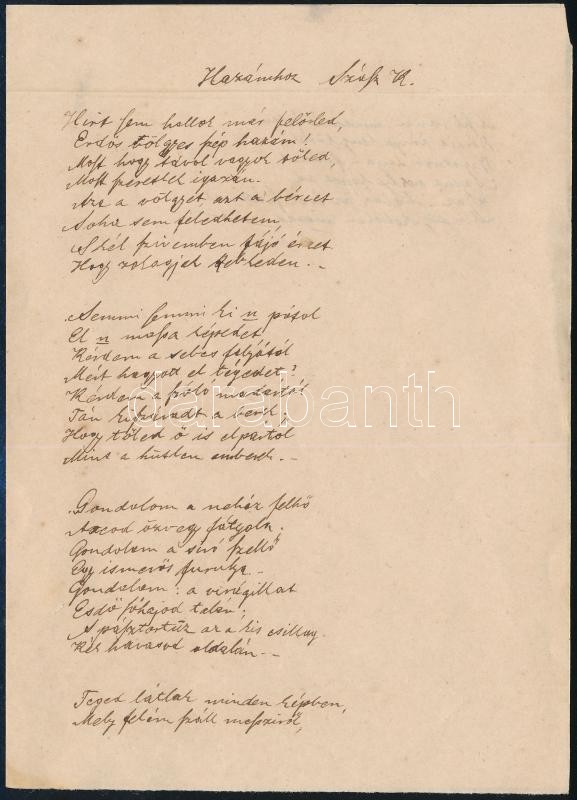 Hazámhoz Szász K.
Hirt sem hallok már felőled,
Erdős tölgyes szép hazám!
Most hogy távol vagyok tőled,
Most szeretlek igazán.
Azt a völgyet azt a bércet
Soha sem feledhetem
S kél szivemben fájó érzet
Hogy zokogjak csendesen. –
Semmi semmi ki n pótol
El n mossa képedet
Kérdem a sebes folyótól
Mért hagyott el tégedet?
Kérdem a szóló madártól
Tán kiszáradt a berk,
Hogy tőled ő is elpártol
Mint a hűtlen emberek. –
Gondolom a nehéz felhő
Arcod özvegy fátyola.
Gondolom a síró szellő
Egy ismerős furulya –
Gondolom: a virágillat
Esdő sóhajod talán;
A pásztortűz az a kis csillag
Kék havasod oldalán –
Teged látlak minden képben,
Mely felém száll messziről,
darabanth